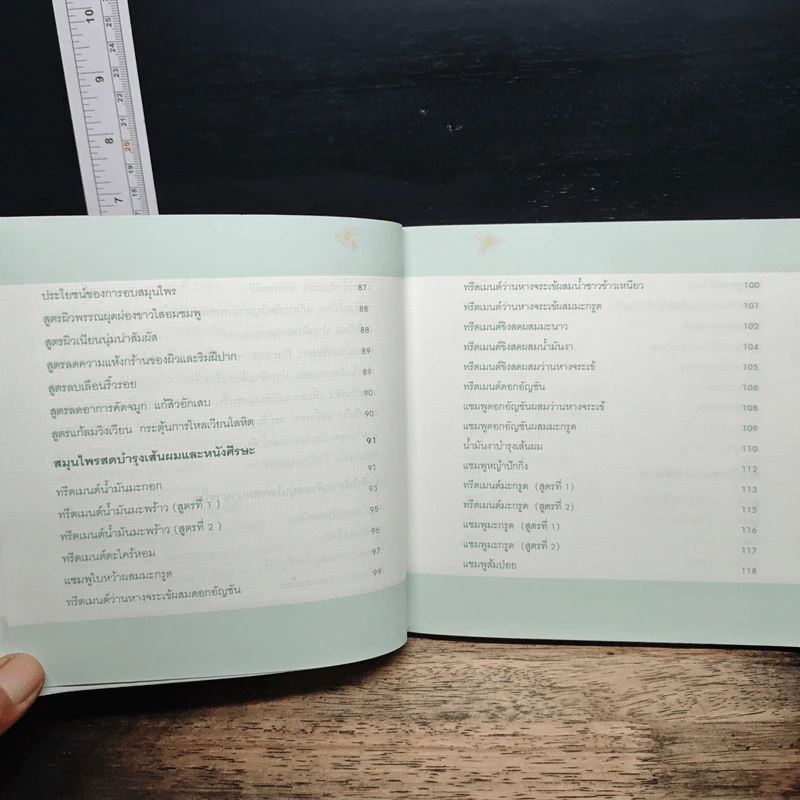 ประโยชน์ของการอบสมุนไพร 87
สูตรผิวพรรณผุดผ่องขาวใสอมชมพู 88
สูตรผิวเนียนนุ่มน่าสัมผัส 88
สูตรลดความแห้งกร้านของผิวและริมฝีปาก 89
สูตรลบเลือนริ้วรอย 89
สูตรลดอาการคัดจมูก แก้สิวอักเสบ 90
สูตรแก้ลมวิงเวียน กระตุ้นการไหลเวียนโลหิต 90
สมุนไพรสดบำรุงเส้นผมและหนังศีรษะ 91
ทรีตเมนต์น้ำมันมะกอก 91
ทรีตเมนต์น้ำมันมะพร้าว (สูตรที่ 1 ) 93
ทรีตเมนต์น้ำมันมะพร้าว (สูตรที่ 2 ) 95
ทรีตเมนต์ตะไคร้หอม 96
แชมพูใบหว้าผสมมะกรูด 97
ทรีตเมนต์ว่านหางจระเข้ผสมดอกอัญชัน 99
ทรีตเมนต์ว่านหางจระเข้ผสมน้ำซาวข้าวเหนียว 100
ทรีตเมนต์ว่านหางจระเข้ผสมมะกรูด 101
ทรีตเมนต์ขิงสดผสมมะนาว 102
ทรีตเมนต์ขิงสดผสมน้ำมันงา 104
ทรีตเมนต์ขิงสดผสมว่านหางจระเข้ 105
ทรีตเมนต์ดอกอัญชัน 106
แชมพูดอกอัญชันผสมว่านหางจระเข้ 108
แชมพูดอกอัญชันผสมมะกรูด 109
น้ำมันงาบำรุงเส้นผม 110
แชมพูหญ้าปักกิ่ง 112
ทรีตเมนต์มะกรูด (สูตรที่ 1) 113
ทรีตเมนต์มะกรูด (สูตรที่ 2) 115
แชมพูมะกรูด (สูตรที่ 1) 116
แชมพูมะกรูด (สูตรที่ 2) 117
แชมพูส้มป่อย 118